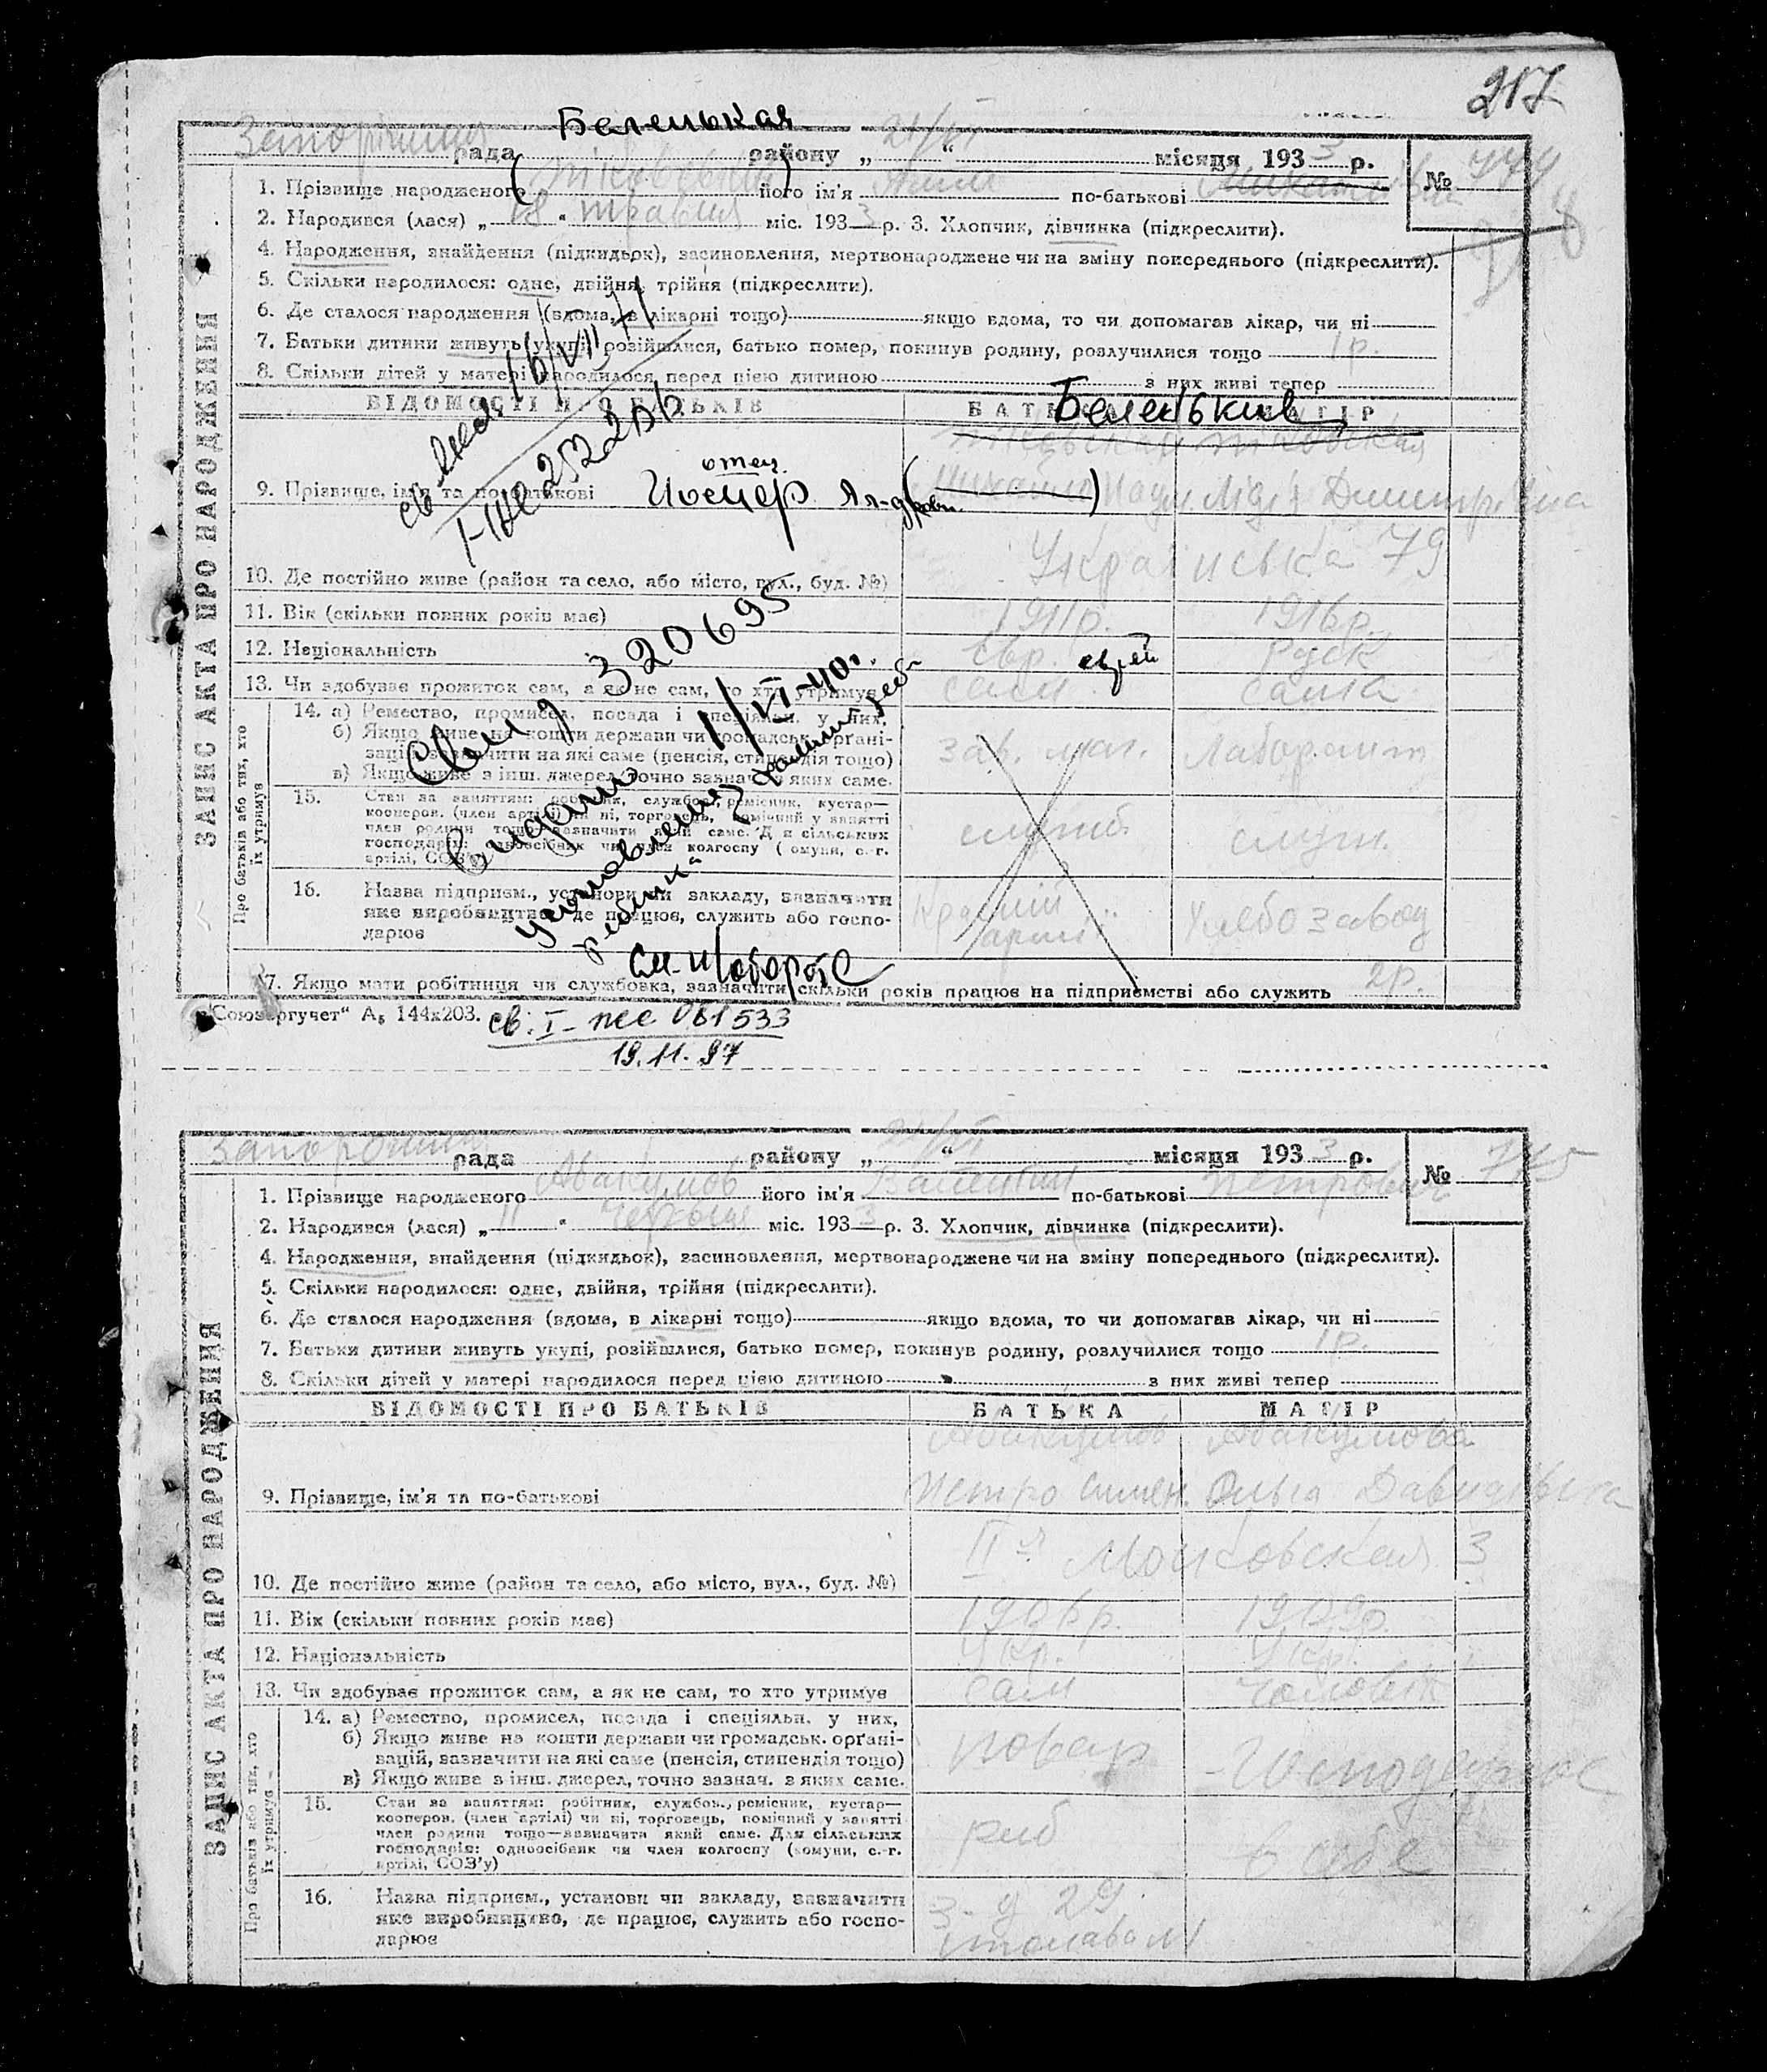 217
Беленькая
рада району „ 21/VI “ місяця 1933 р.
№ 774
1. Прізвище народженого його ім'я по-батькові
2. Народився (лася) „ 18 “ травня міс. 1933 р. 3. Хлопчик, дівчинка (підкреслити).
4. Народження, знайдення (підкидьок), засиновлення, мертвонароджене чи на зміну попереднього (підкреслити).
5. Скільки народилося: одне, двійня, трійня (підкреслити).
6. Де сталося народження (вдома, в лікарні тощо) якщо вдома, то чи допомагав лікар, чи ні
7. Батьки дитини живуть укупі, розійшлися, батько помер, покинув родину, розлучилися тощо 1 р.
8. Скільки дітей у матері народилося перед цією дитиною з них живі тепер
ЗАПИС АКТА ПРО НАРОДЖЕННЯ
ВІДОМОСТІ ПРО БАТЬКІВ БАТЬКА МАТІР
Беленький
отец
9. Прізвище, ім'я та по-батькові Михайло Лідія Дмитрівна
10. Де постійно живе (район та село, або місто, вул., буд. №) Українська 79
11. Вік (скільки повних років має) 1911р. 1916р.
12. Національність євр. еврей Руск
13. Чи здобуває прожиток сам, а як не сам, то хто утримує сам сама
Про батьків або тих, хто їх утримує
14. а) Ремество, промисел, посада і спеціяльн. у них,
б) Якщо живе на кошти держави чи громадськ. орґані-
зацій, зазначити на які саме (пенсія, стипендія тощо)
в) Якщо живе з інш. джерел, точно зазнач. з яких саме.
зав. маг. Лаборант
15. Стан за заняттям: робітник, службов., ремісник, кустар—
кооперов. (член артілі) чи ні, торговець, помічний у занятті
член родини тощо—зазначити який саме. Для сільських
господарів: одноосібник чи член колгоспу (комуни, с.-г.
артілі, СОЗ'у)
служб. служ.
16. Назва підприєм., установи чи закладу, зазначити
яке виробництво, де працює, служить або госпо-
дарює
Хлебозавод
320695
1/VI-40г.
См. на обороте
17. Якщо мати робітниця чи службовка, зазначити скільки років працює на підприємстві або служить 2р.
„Союзоргучет“ А5 144х203.
св. I-ЖС 061533
19.11.97
рада району „ 21/VI “ місяця 1933 р.
№ 775
1. Прізвище народженого Авакумов його ім'я Валентин по-батькові Петрович
2. Народився (лася) „ 11 “ Червня міс. 1933 р. 3. Хлопчик, дівчинка (підкреслити).
4. Народження, знайдення (підкидьок), засиновлення, мертвонароджене чи на зміну попереднього (підкреслити).
5. Скільки народилося: одне, двійня, трійня (підкреслити).
6. Де сталося народження (вдома, в лікарні тощо) якщо вдома, то чи допомагав лікар, чи ні
7. Батьки дитини живуть укупі, розійшлися, батько помер, покинув родину, розлучилися тощо 1р.
8. Скільки дітей у матері народилося перед цією дитиною з них живі тепер
ЗАПИС АКТА ПРО НАРОДЖЕННЯ
ВІДОМОСТІ ПРО БАТЬКІВ БАТЬКА МАТІР
Авакумов Авакумова
9. Прізвище, ім'я та по-батькові Петро Ольга Давидівна
10. Де постійно живе (район та село, або місто, вул., буд. №) II-я Московская 3
11. Вік (скільки повних років має) 1906р. 1909р.
12. Національність Укр. Укр.
13. Чи здобуває прожиток сам, а як не сам, то хто утримує сам Чоловік
Про батьків або тих, хто їх утримує
14. а) Ремество, промисел, посада і спеціяльн. у них,
б) Якщо живе на кошти держави чи громадськ. орґані-
зацій, зазначити на які саме (пенсія, стипендія тощо)
в) Якщо живе з інш. джерел, точно зазнач. з яких саме.
повар
15. Стан за заняттям: робітник, службов., ремісник, кустар—
кооперов. (член артілі) чи ні, торговець, помічний у занятті
член родини тощо—зазначити який саме. Для сільських
господарів: одноосібник чи член колгоспу (комуни, с.-г.
артілі, СОЗ'у)
роб
16. Назва підприєм., установи чи закладу, зазначити
яке виробництво, де працює, служить або госпо-
дарює
З-д 29